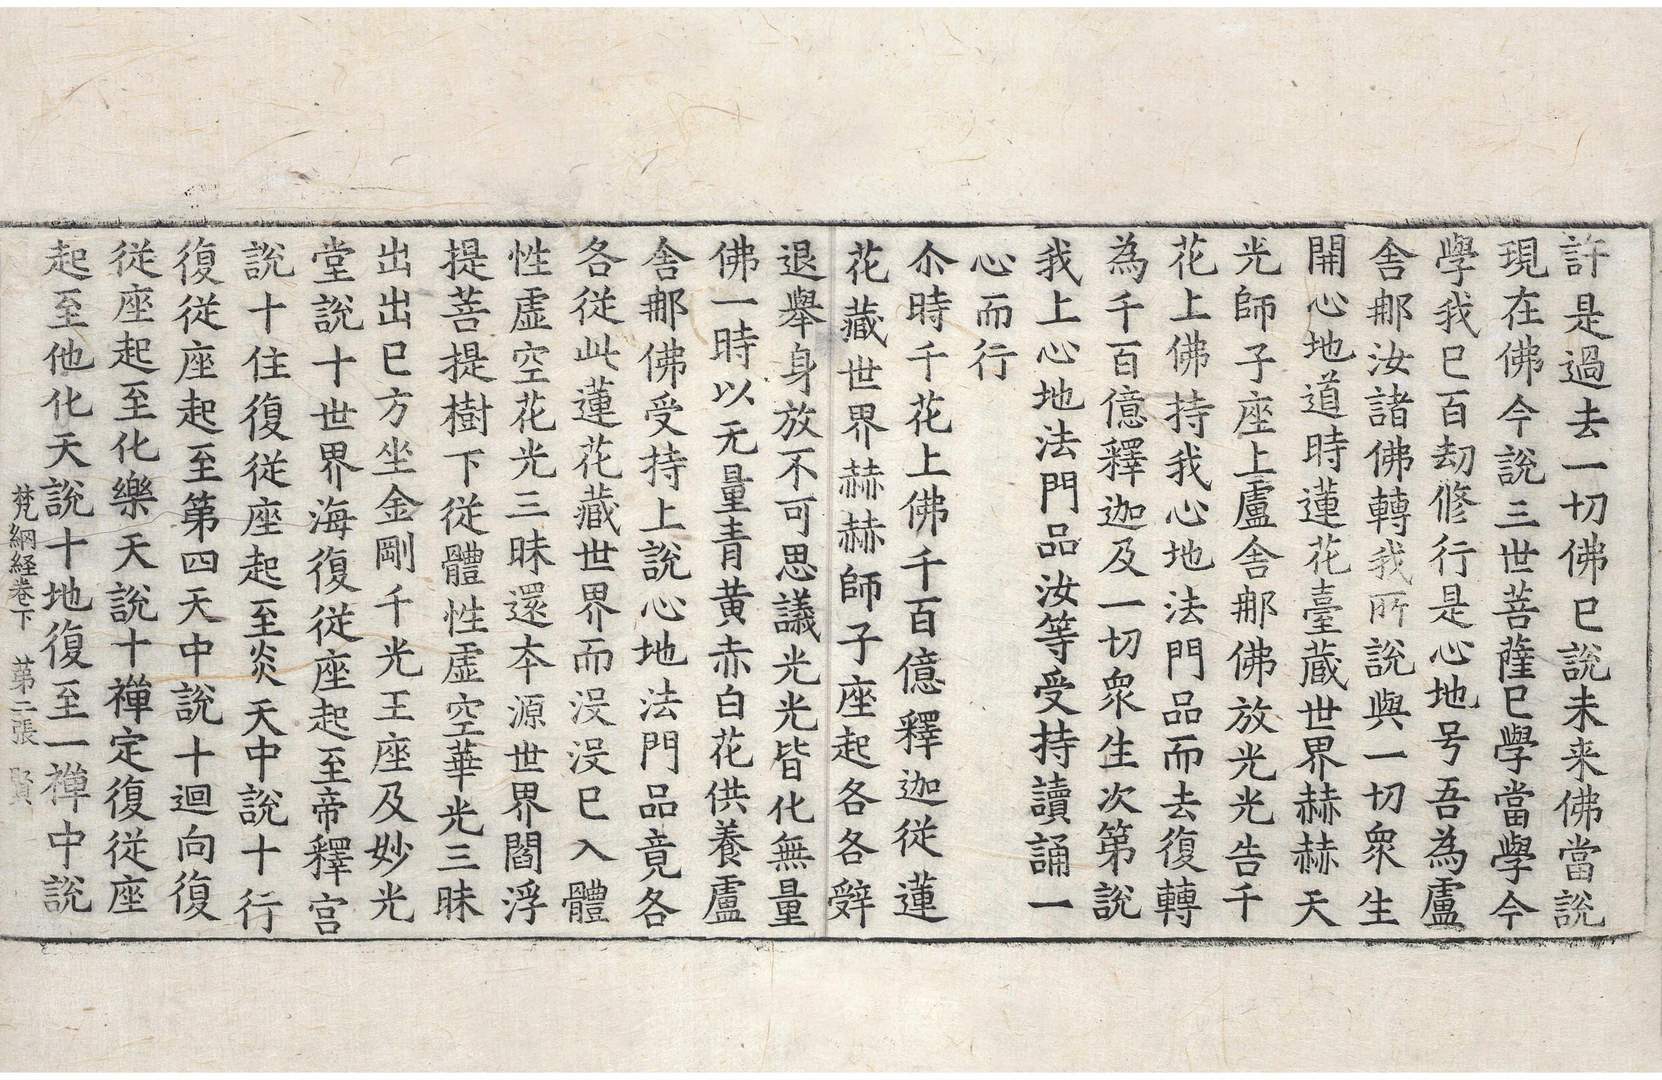 許是過去一切佛已說未来佛當說
現在佛今說三世菩薩已學當學今
學我已百劫修行是心地号吾為盧
舍那汝諸佛轉我所說與一切衆生
開心地道時蓮花臺藏世界赫赫天
光師子座上盧舍那佛放光光告千
花上佛持我心地法門品而去復轉
為千百億釋迦及一切衆生次第說
我上心地法門品汝等受持讀誦一
心而行
尒時千花上佛千百億釋迦従蓮
花藏世界赫赫師子座起各各辤
退舉身放不可思議光光皆化無量
佛一時以无量青黄赤白花供養盧
舍那佛受持上說心地法門品竟各
各従此蓮花藏世界而没没已入體
性虛空花光三昧還本源世界閻浮
提菩提樹下従體性虛空華光三昧
出出已方坐金剛千光王座及妙光
堂說十世界海復従座起至帝釋宫
說十住復従座起至炎天中說十行
復従座起至第四天中說十迴向復
従座起至化樂天說十禪定復従座
起至他化天說十地復至一禪中說
梵網経卷下　苐二張　賢